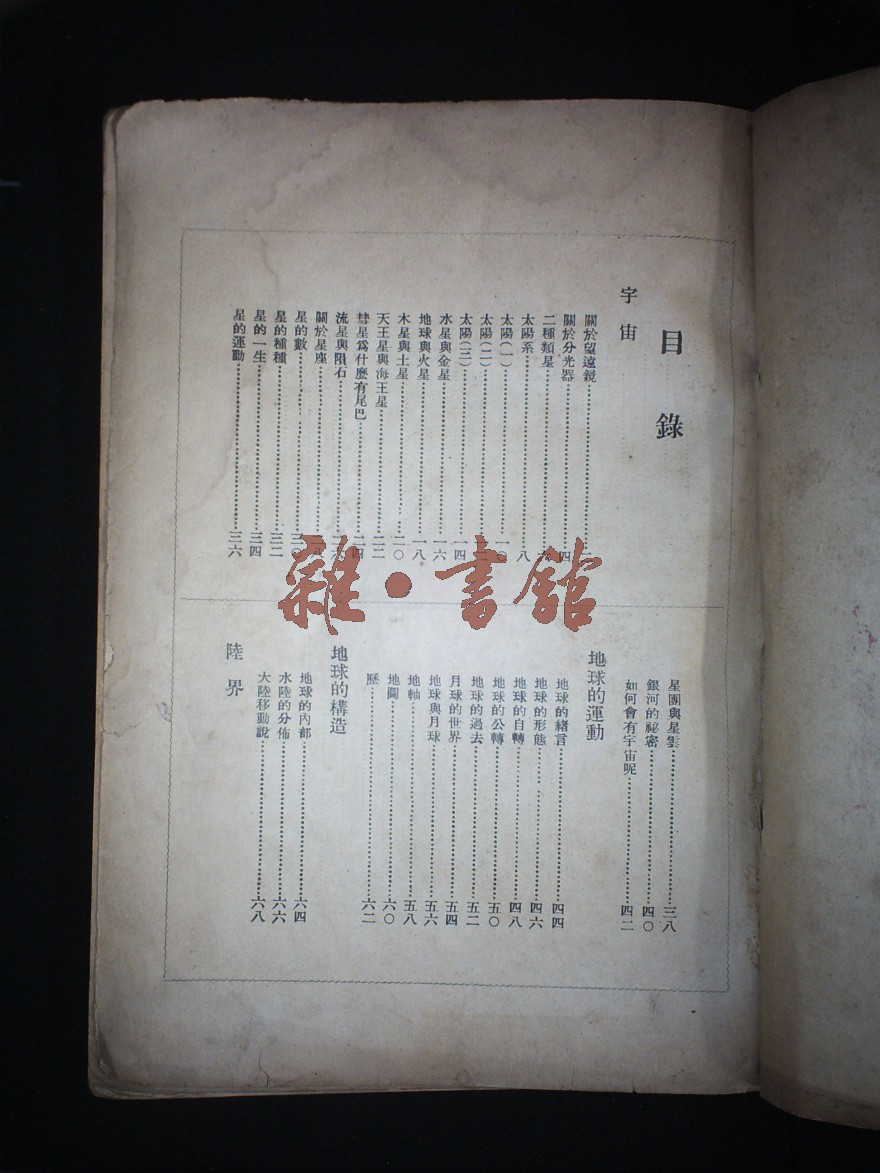 目錄
宇宙
關於望遠鏡
關於分光器 四
二種類星
太陽系 八
太陽(一)
太陽(二)
太陽(三) 一四
水星與金星 一六
地球與火星 一八
木星與土星 二〇
天王星與海王星 二二
彗星爲什麼有尾巴 二四
流星與隕石
關於星座
星的數
星的種種 三二
星的一生 三四
星的運動 三六
星團與星雲 三八
銀河的祕密 四〇
如何會有宇宙呢 四二
地球的運動
地球的緒言 四四
地球的形態 四六
地球的自轉 四八
地球的公轉 五〇
地球的過去 五二
月球的世界 五四
地球與月球 五六
地軸 五八
地圖 六〇
曆 六二
地球的構造
地球的內部 六四
水陸的分佈 六六
大陸移動說 六八
陸界
雜·書館